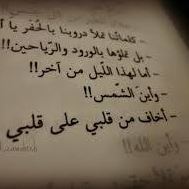 - كلماتنا تملأ دروبنا بالحُفر يا أ
- بل تملؤها بالورود والرّياحين!!
- أما لهذا اللّيل من آخر!!
- وأين الشّمس!!
- أخاف من قلبي على قلبي
- وأين الله!!